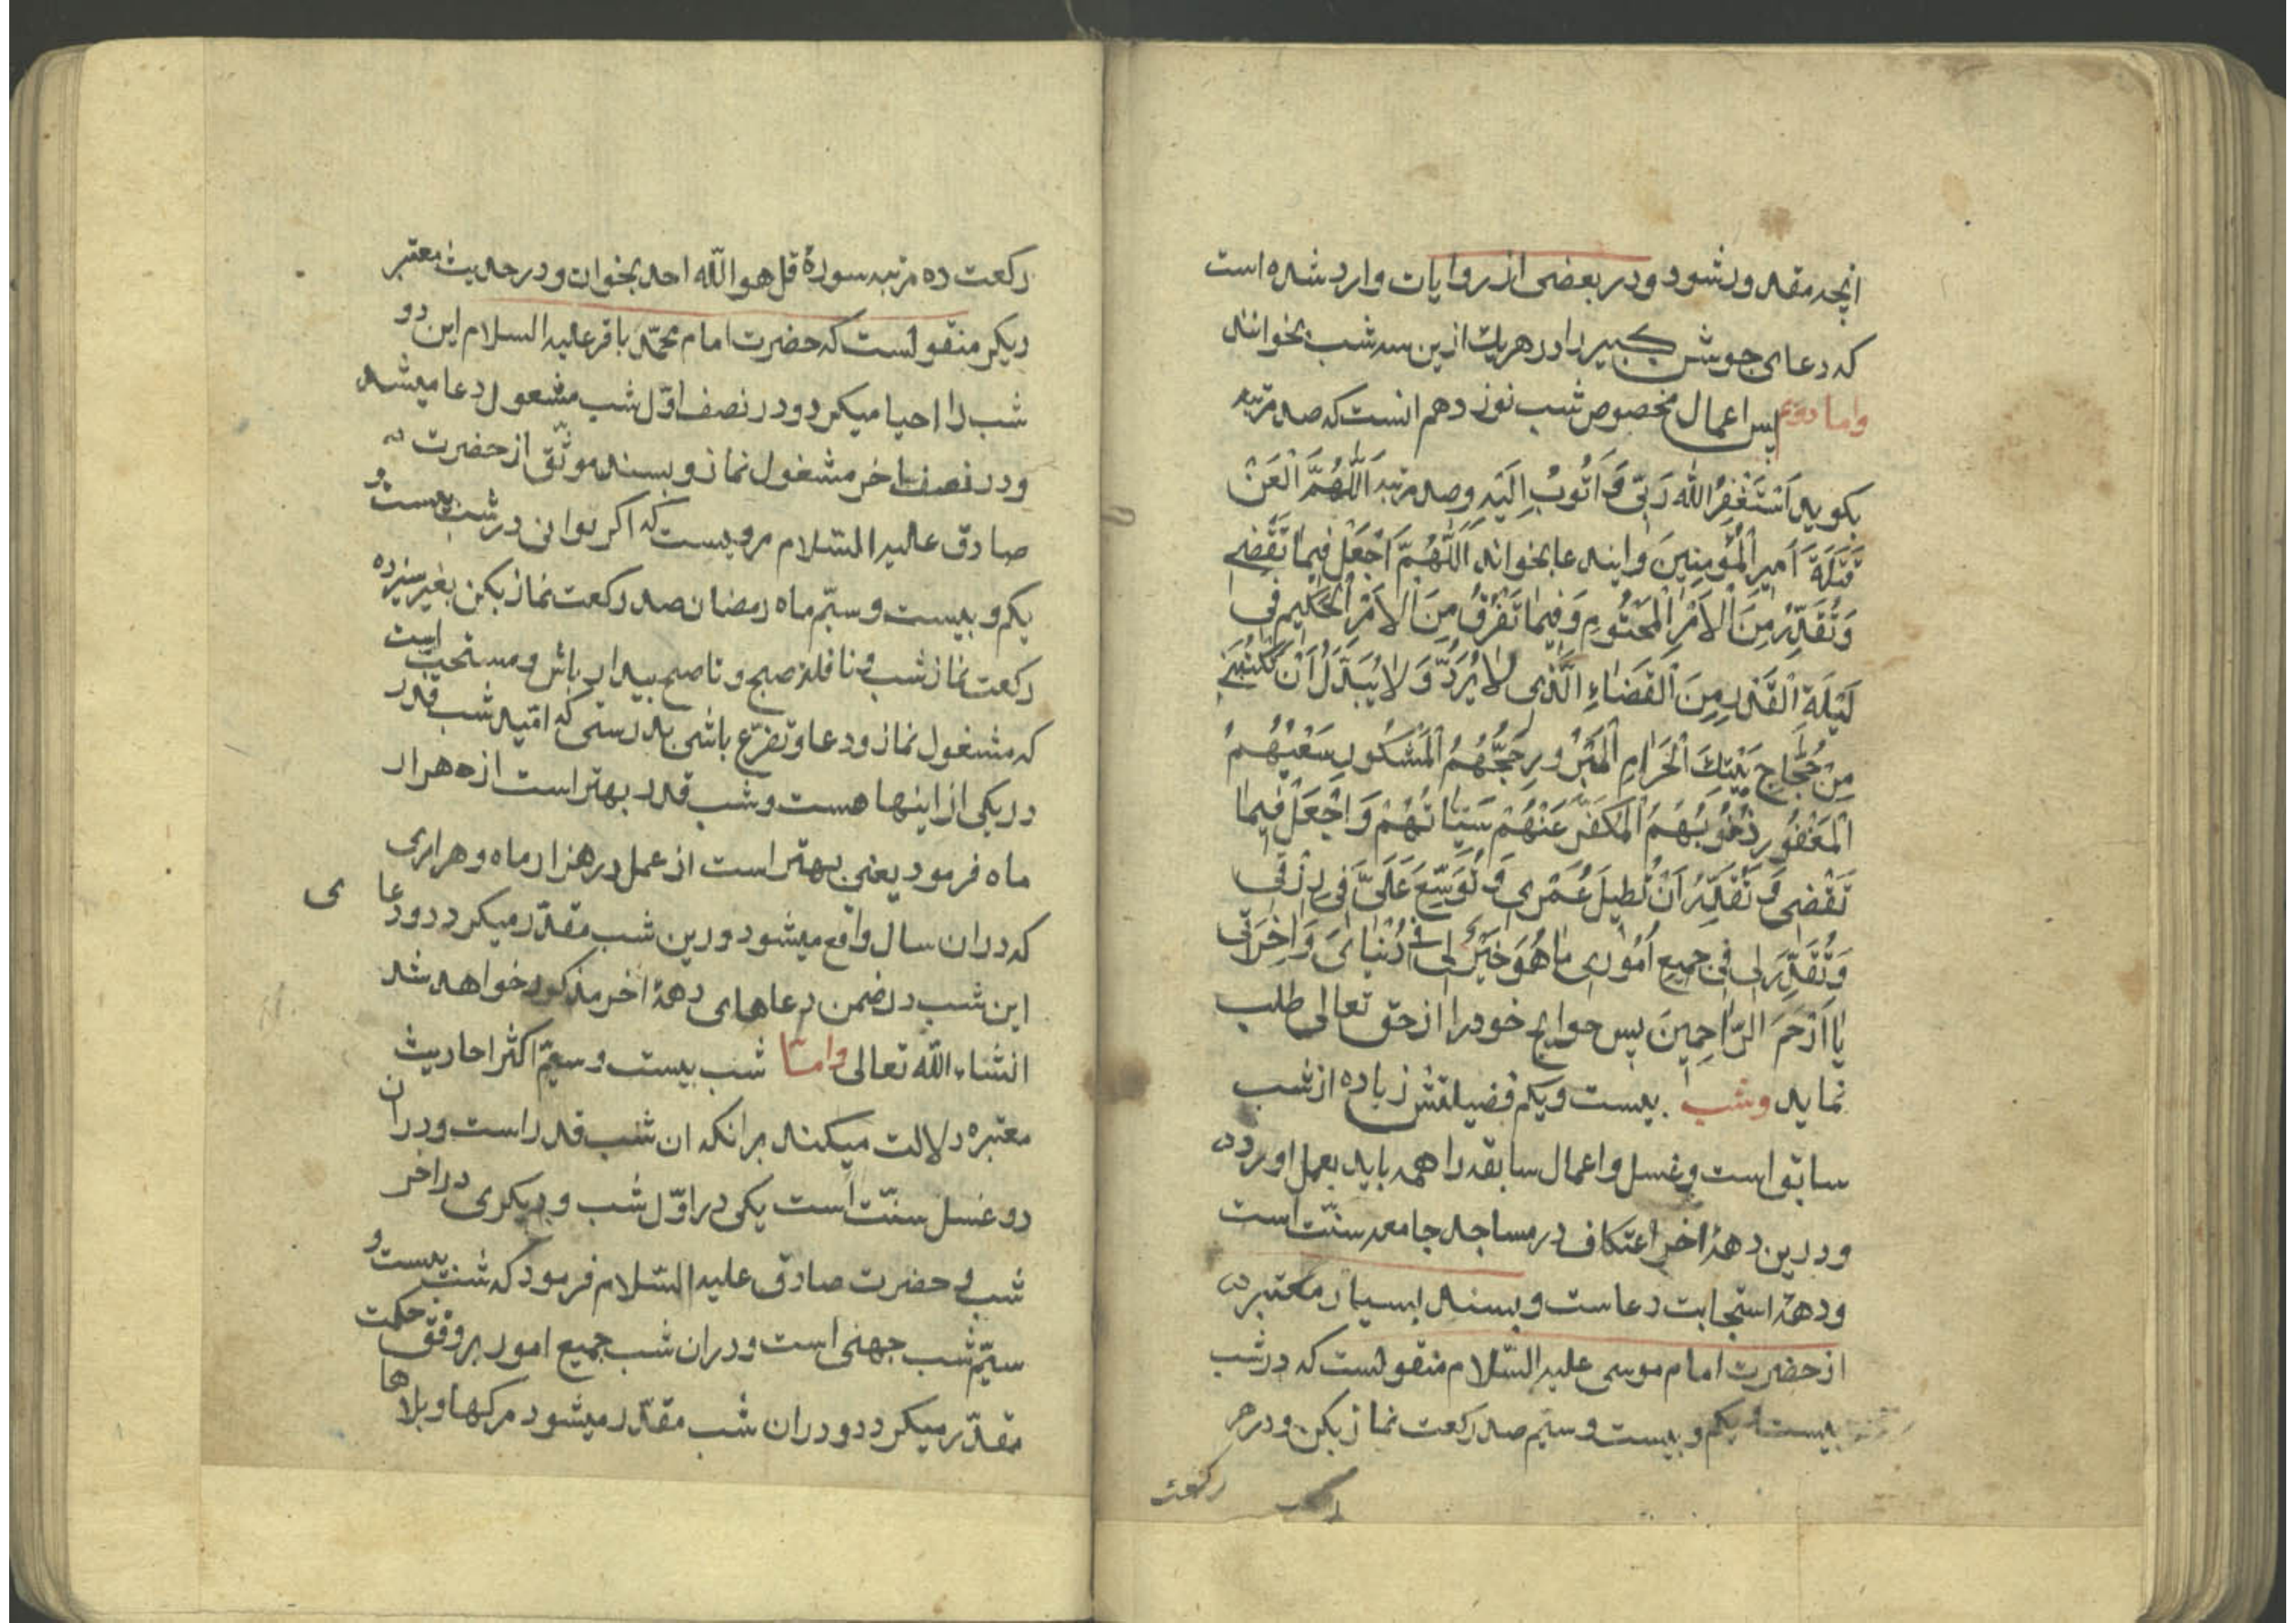 انچه مقدور شود و در بعضی از روایات وارد شده است
که دعای جوشن کبیر را در هر یک ازین سه شب بخوانند
واما دوم پس اعمال مخصوص شب نوزدهم انست که صد مرتبه
بکوید اَسْتَغْفِرُ اللّٰهَ رَبّی وَ اَتُوبُ اِلَیْهِ وصد مرتبه اَللّٰهُمَّ الْعَنْ
قَتَلَةَ اَمیرِ الْمُؤْمِنینَ واین دعا بخواند اَللّٰهُمَّ اجْعَلْ فیمٰا تَقْضی
وَتُقَدِّرُ مِنَ الْاَمْرِ الْمَحْتُومِ وَفیمٰا تَفْرُقُ مِنَ الْاَمْرِ الْحَکیمِ فی
لَیْلَةِ الْقَدْرِ مِنَ الْقَضٰاءِ الَّذی لٰا یُرَدُّ وَلٰا یُبَدَّلُ اَنْ تَکْتُبَنی
مِنْ حُجّٰاجِ بَیْتِكَ الْحَرٰامِ الْمَبْرُورِ حَجُّهُمُ الْمَشْکُورِ سَعْیُهُمُ
الْمَغْفُورِ ذُنُوبُهُمُ الْمُکَفَّرِ عَنْهُمْ سَیِّاٰتُهُمْ وَاجْعَلْ فیمٰا
تَقْضی وَ تُقَدِّرُ اَنْ تُطیلَ عُمْری وَ تُوَسِّعَ عَلَیَّ فی رِزْقی
وَتُقَدِّرَ لی فی جَمیعِ اُمُوری مٰا هُوَ خَیْرٌ لی فی دُنْیٰایَ وَاٰخِرَتی
یٰا اَرْحَمَ الرّٰاحِمینَ پس حوایج خود را از حق تعالی طلب
نماید وشب بیست ویکم فضیلتش زیاده از شب
سابق است وغسل واعمال سابقه را همه باید بعمل اورد
ودرین دههٔ اخر اعتکاف در مساجد جامعه سنّت است
ودههٔ استجابت دعاست وبسند بسیار معتبر
از حضرت امام موسی علیه السّلام منقولست که در شب
بیست و یکم و بیست وسیّم صد رکعت نماز بکن ودر هر
رکعت
رکعت ده مرتبه سورهٔ قل هو اللّٰه احد بخوان ودر حدیث معتبر
دیکر منقولست که حضرت امام محمّد باقر علیه السلام این دو
شب را احیا میکرد ودر نصف اوّل شب مشغول دعا میشد
ودر نصف اخر مشغول نماز وبسند موثّق از حضرت
صادق علیه السّلام مرویست که اکر توانی در شب بیست و
یکم و بیست وسیّم ماه رمضان صد رکعت نماز بکن بغیر سیزده
رکعت نماز شب و نافلهٔ صبح وتا صبح بیدار باش ومستحبّ است
که مشغول نماز ودعا وتضرّع باشی بدرستی که امّید شب قدر
در یکی از اینها هست وشب قدر بهتر است از هزار
ماه فرمود یعنی بهتر است از عمل در هزار ماه وهر امری
که دران سال واقع میشود درین شب مقدّر میکردد ودعا ی
این شب در ضمن دعاهای دههٔ اخر مذکور خواهد شد
انشاء اللّٰه تعالی وامّا شب بیست وسیّم اکثر احادیث
معتبره دلالت میکند برانکه ان شب قدر است ودران
دو غسل سنّت است یکی در اوّل شب ودیکری در اخر
شب و حضرت صادق علیه السّلام فرمود که شب بیست و
سیّم شب جهنی است ودران شب جمیع امور بر وفق حکمت
مقدّر میکردد ودران شب مقدّر میشود مرکها وبلاها